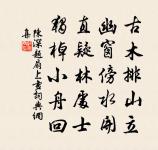 古木排山立
幽窗傍水開
直疑林處士
獨棹小舟回
陳深題扇上畫詞典網
集